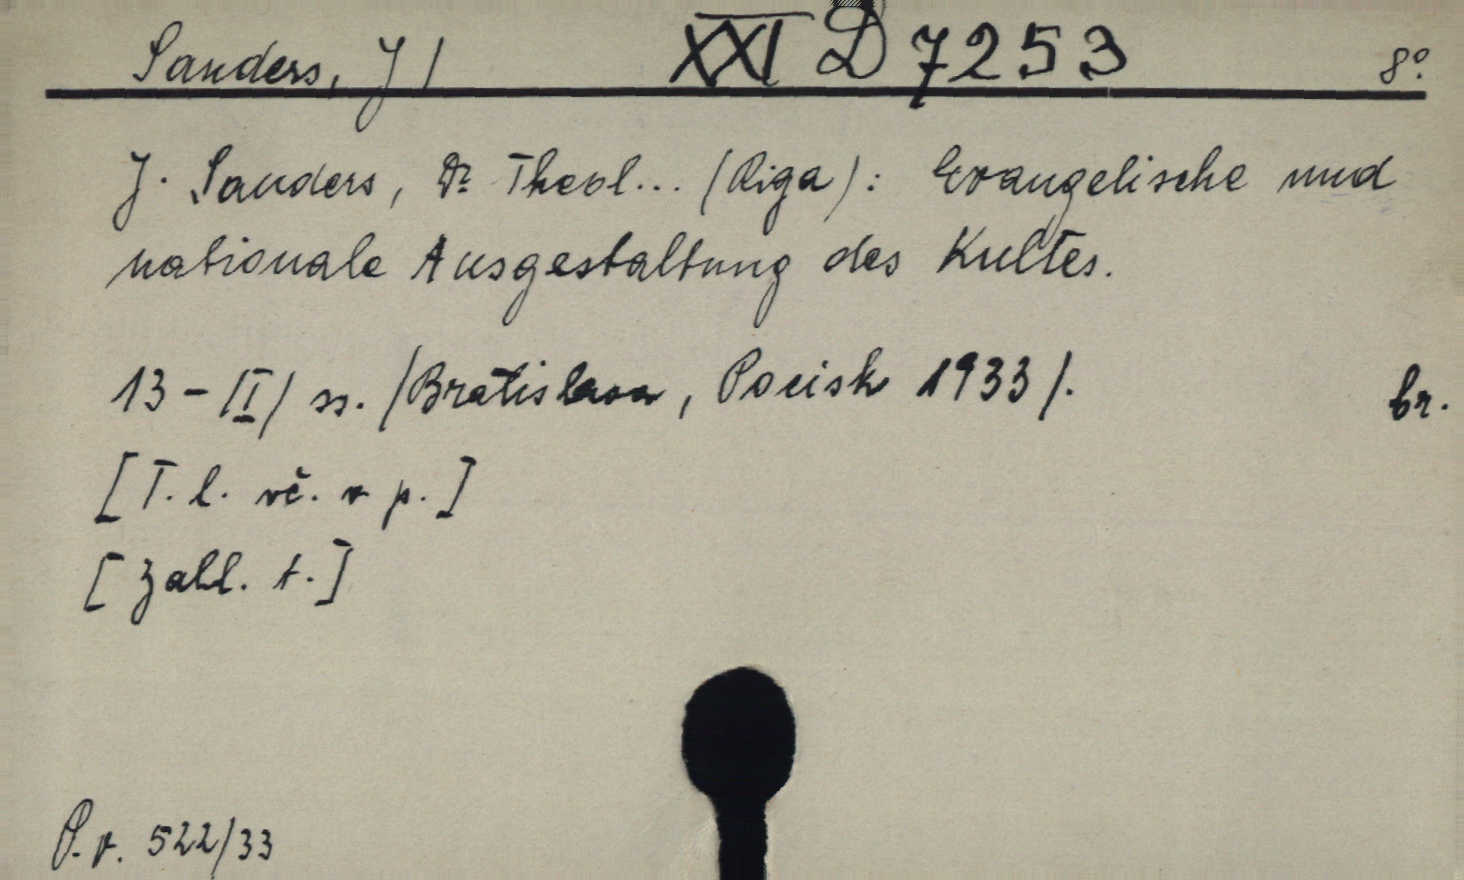 Sanders, J / XXI D 7253 8°.
J. Sanders, Dr Theol... (Riga): Evangelische und
nationale Ausgestaltung des Kultes.
13 - /II/ ss. /Bratislava, Pocisk 1933/. br.
[T. l. vč. v p.]
[Záhl. t.]
P. v. 522/33